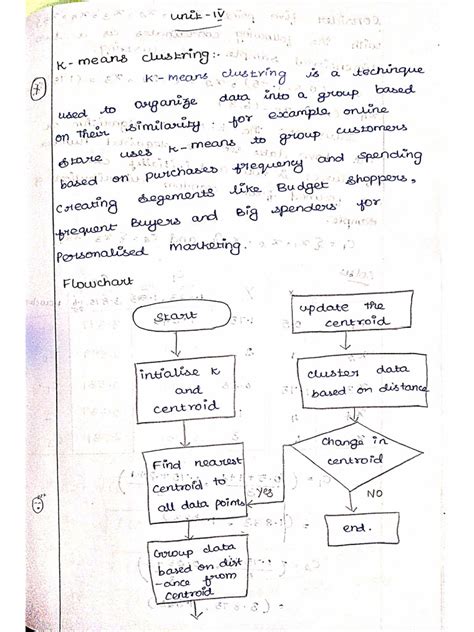 unit - IV
K-means clustring:-
K-means clustring is a techinque
used to organize data into a group based
on their similarity. for example, online
store uses K-means to group customers
based on purchases frequency and spending
creating segements like Budget shoppers,
frequent Buyers and Big spenders for
personalised marketing.
Flowchart
Start
intialise K
and
centroid
Find nearest
centroid to
all data points
Group data
based on dist
-ance from
centroid
update the
centroid
cluster data
based on distance
change in
centroid
Yes
NO
end.